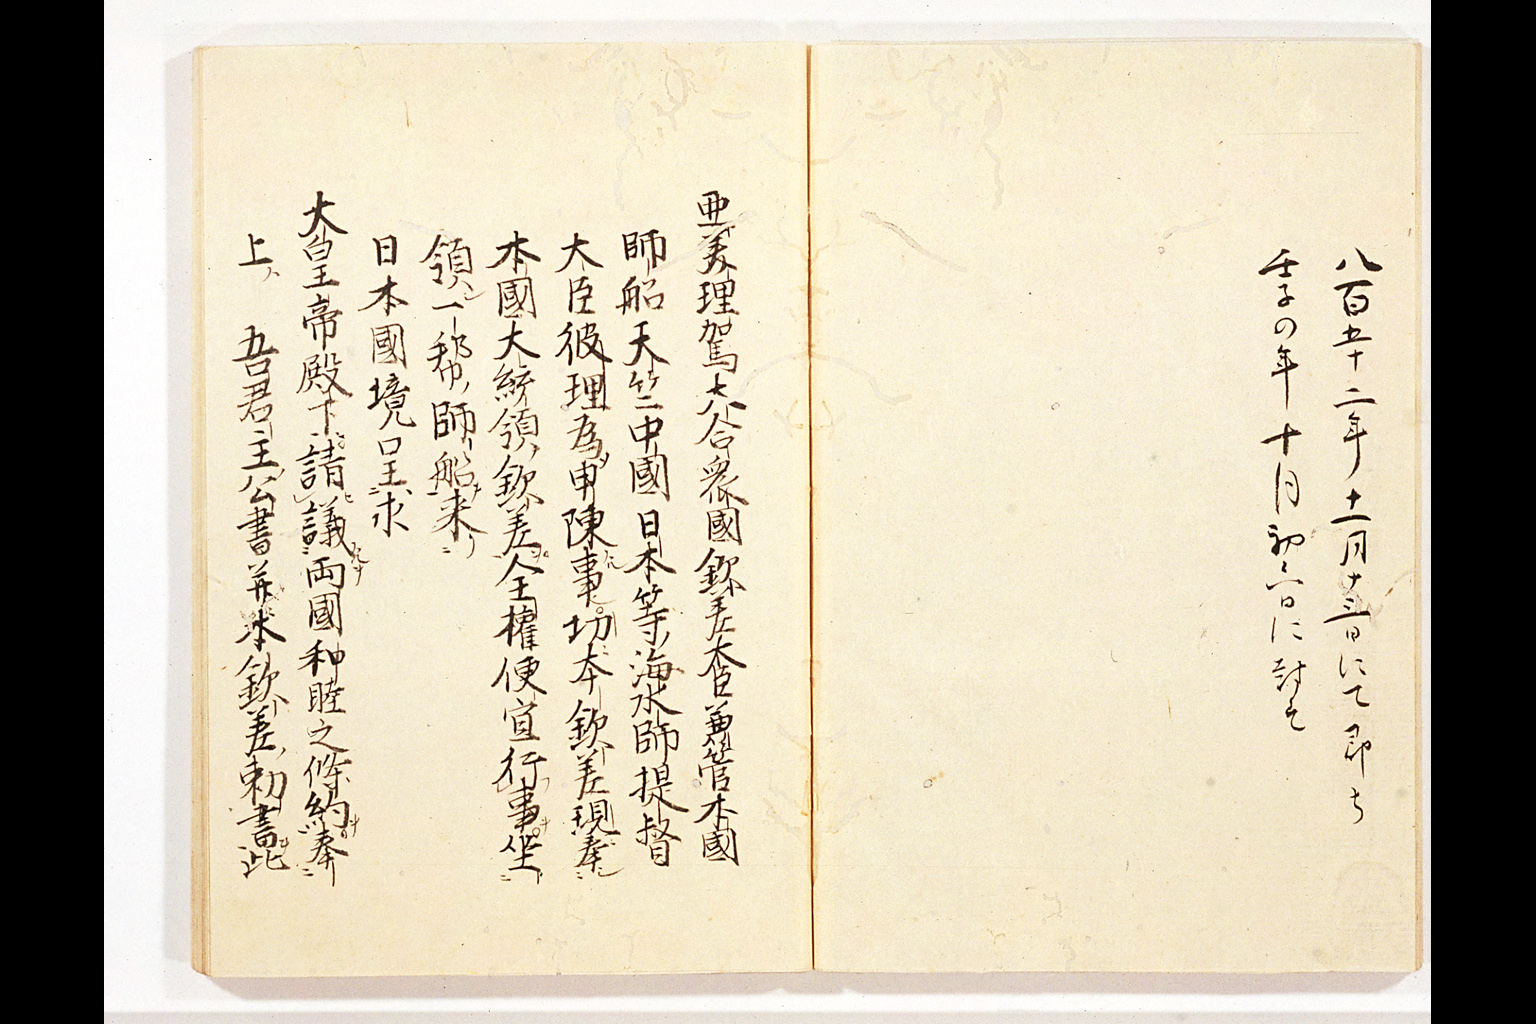 八百五十二年十一月十三日にて即ち
壬子の年十月初六日に封を
亜美理駕大合衆國欽差大臣兼管本國
師船天竺中國日本等海水師提督
大臣彼理為申陳事切本欽差現奉
本國大統領欽差全權便宜行事坐
領一幇師船来
日本國境口呈求
大皇帝殿下請議両國和睦之條約奉
上 吾君主公書并本欽差勅書此